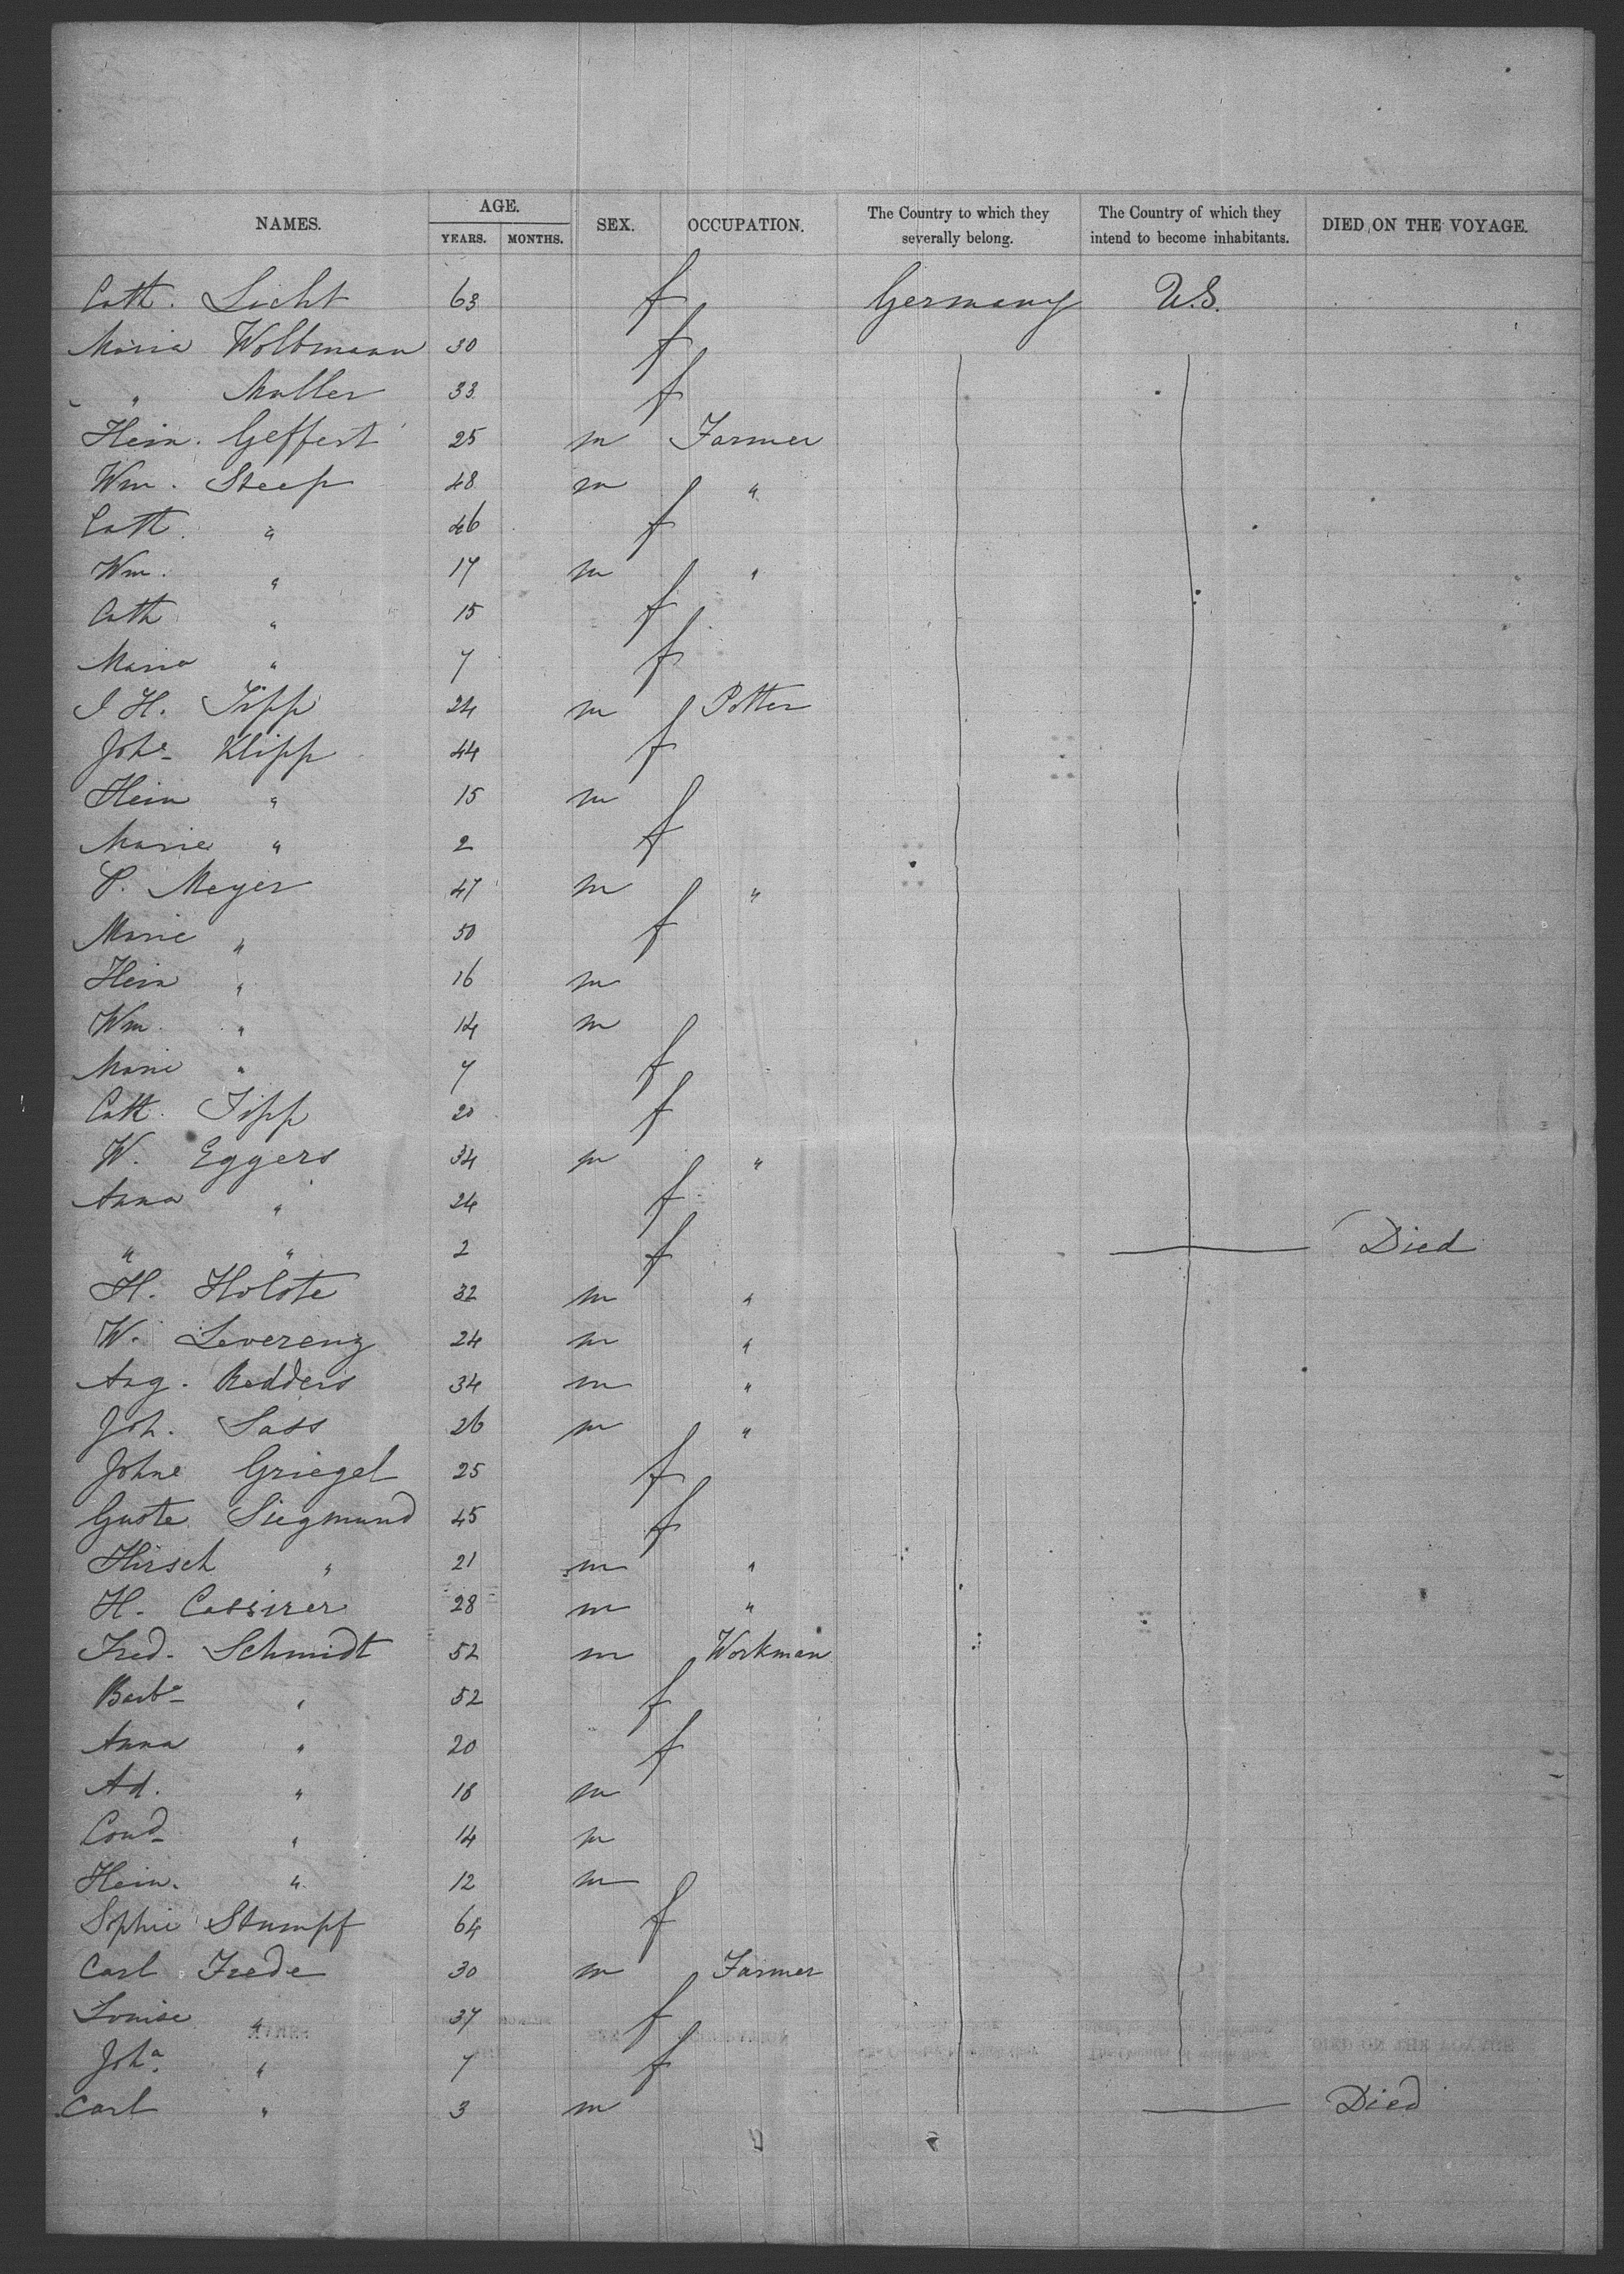 NAMES. AGE. YEARS. MONTHS. SEX. OCCUPATION. The Country to which they severally belong. The Country of which they intend to become inhabitants. DIED ON THE VOYAGE.
Cath. Licht 63 f Germany U.S.
Maria Woltmann 30 f
" Muller 33 f
Hein. Geffert 25 m Farmer
Wm. Steep 48 m "
Cath. " 46 f
Wm. " 17 m "
Cath " 15 f
Maria " 7 f
J H. Tipp 24 m Potter
Johe Klipp 44 f
Hein " 15 m
Marie " 2 f
P. Meyer 47 m "
Marie " 50 f
Hein " 16 m
Wm. " 14 m
Marie " 7 f
Cath. Tipp 20 f
W. Eggers 34 m "
Anna " 24 f
" " 2 f Died
H. Holste 32 m "
W. Leverenz 24 m "
Aug. Redders 34 m "
Joh. Sass 26 m "
Johne Griegel 25 f
Guste Siegmund 45 f
Hirsch " 21 m "
H. Cassirer 28 m "
Fred. Schmidt 52 m Workman
Barba " 52 f
Anna " 20 f
Ad. " 18 m
Cond " 14 m
Hein. " 12 m
Sophie Stumpf 64 f
Carl Frede 30 m Farmer
Louise " 37 f
Joha " 7 f
Carl " 3 m Died